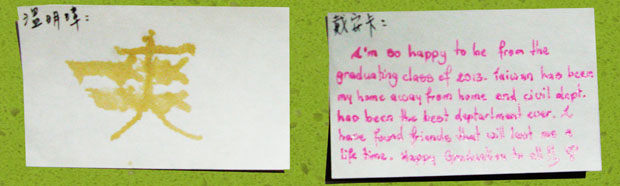 溫明璋:
爽
戴安卡:
I'm so happy to be from the
graduating class of 2013. Taiwan has been
my home away from home and civil dept.
has been the best deptartment ever. I
have found friends that will last me a
life time. Happy Graduation to all!!